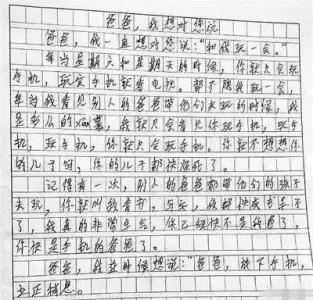 爸爸,我想对您说
爸爸,我一直想对您说:"和我玩一会。"
每当星期六和星期天的时候,你就只会玩
手机,玩完手机就看电视。都不陪我玩一会,
每当我看见别人的爸爸带他们去玩的时候,我
是多么的xian慕,我就只会看见你玩手机,玩手
机,玩手机,你就只会玩手机,你就不想想你
的儿子吗,你的儿子都快烦死了。
记得有一次,别人的爸爸都带他们的孩子
去玩,你就叫我看书,写字,我都快成书呆子
了,我真的非常生气,你已经快不是我爸了,
你快是手机的爸爸了。
爸爸,我这时候想说:"爸爸,放下手机,
去正